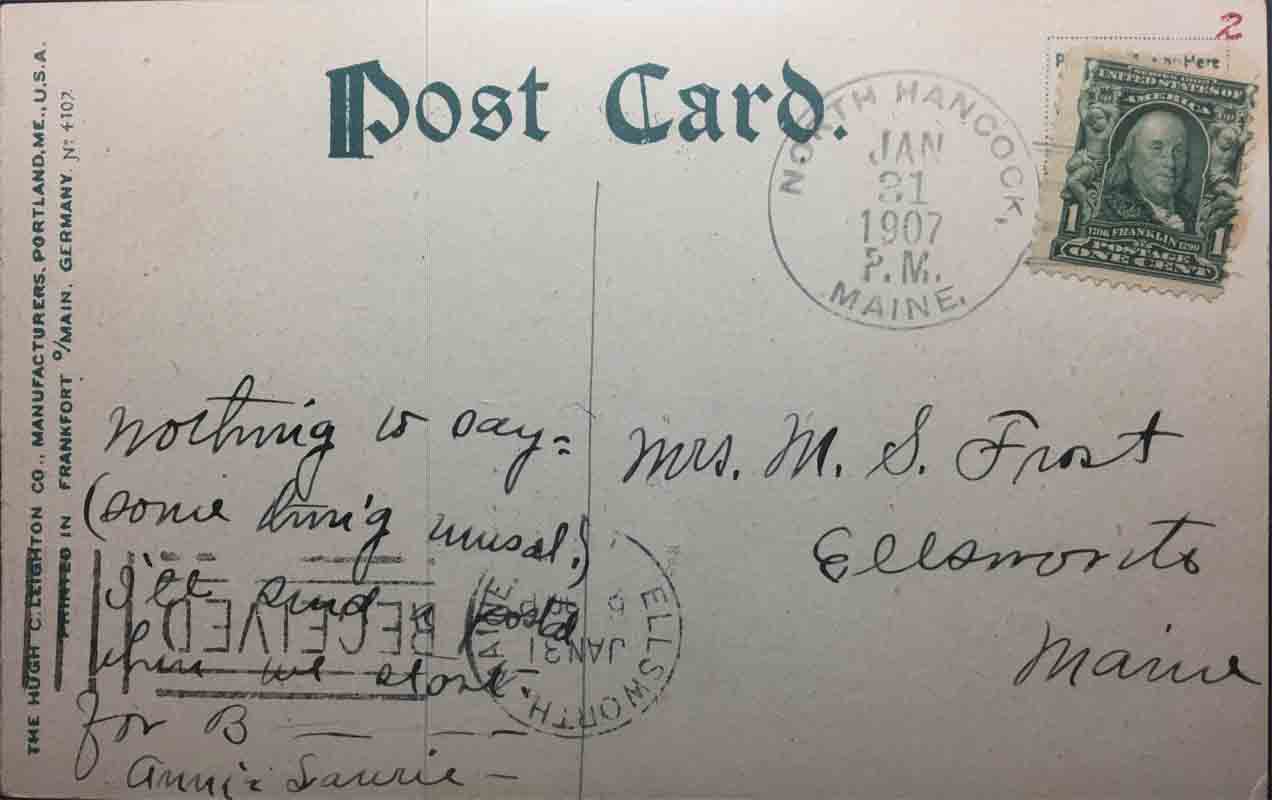 Post Card.
2
P Here
UNITED STATES OF
AMERICA
1 1
1706 FRANKLIN 1790
POSTAGE
ONE CENT
NORTH HANCOCK,
JAN
31
1907
P.M.
MAINE.
THE HUGH C. LEIGHTON CO., MANUFACTURERS, PORTLAND, ME., U.S.A.
PRINTED IN FRANKFORT o/MAIN, GERMANY. No 4107
nothing to say=
(some thing unusal.)
I'll send a
when we
for B — — —
Annie Laurie —
Mrs. M. S. Frost
Ellsworth
Maine
RECEIVED
ELLSWORTH,
JAN 31